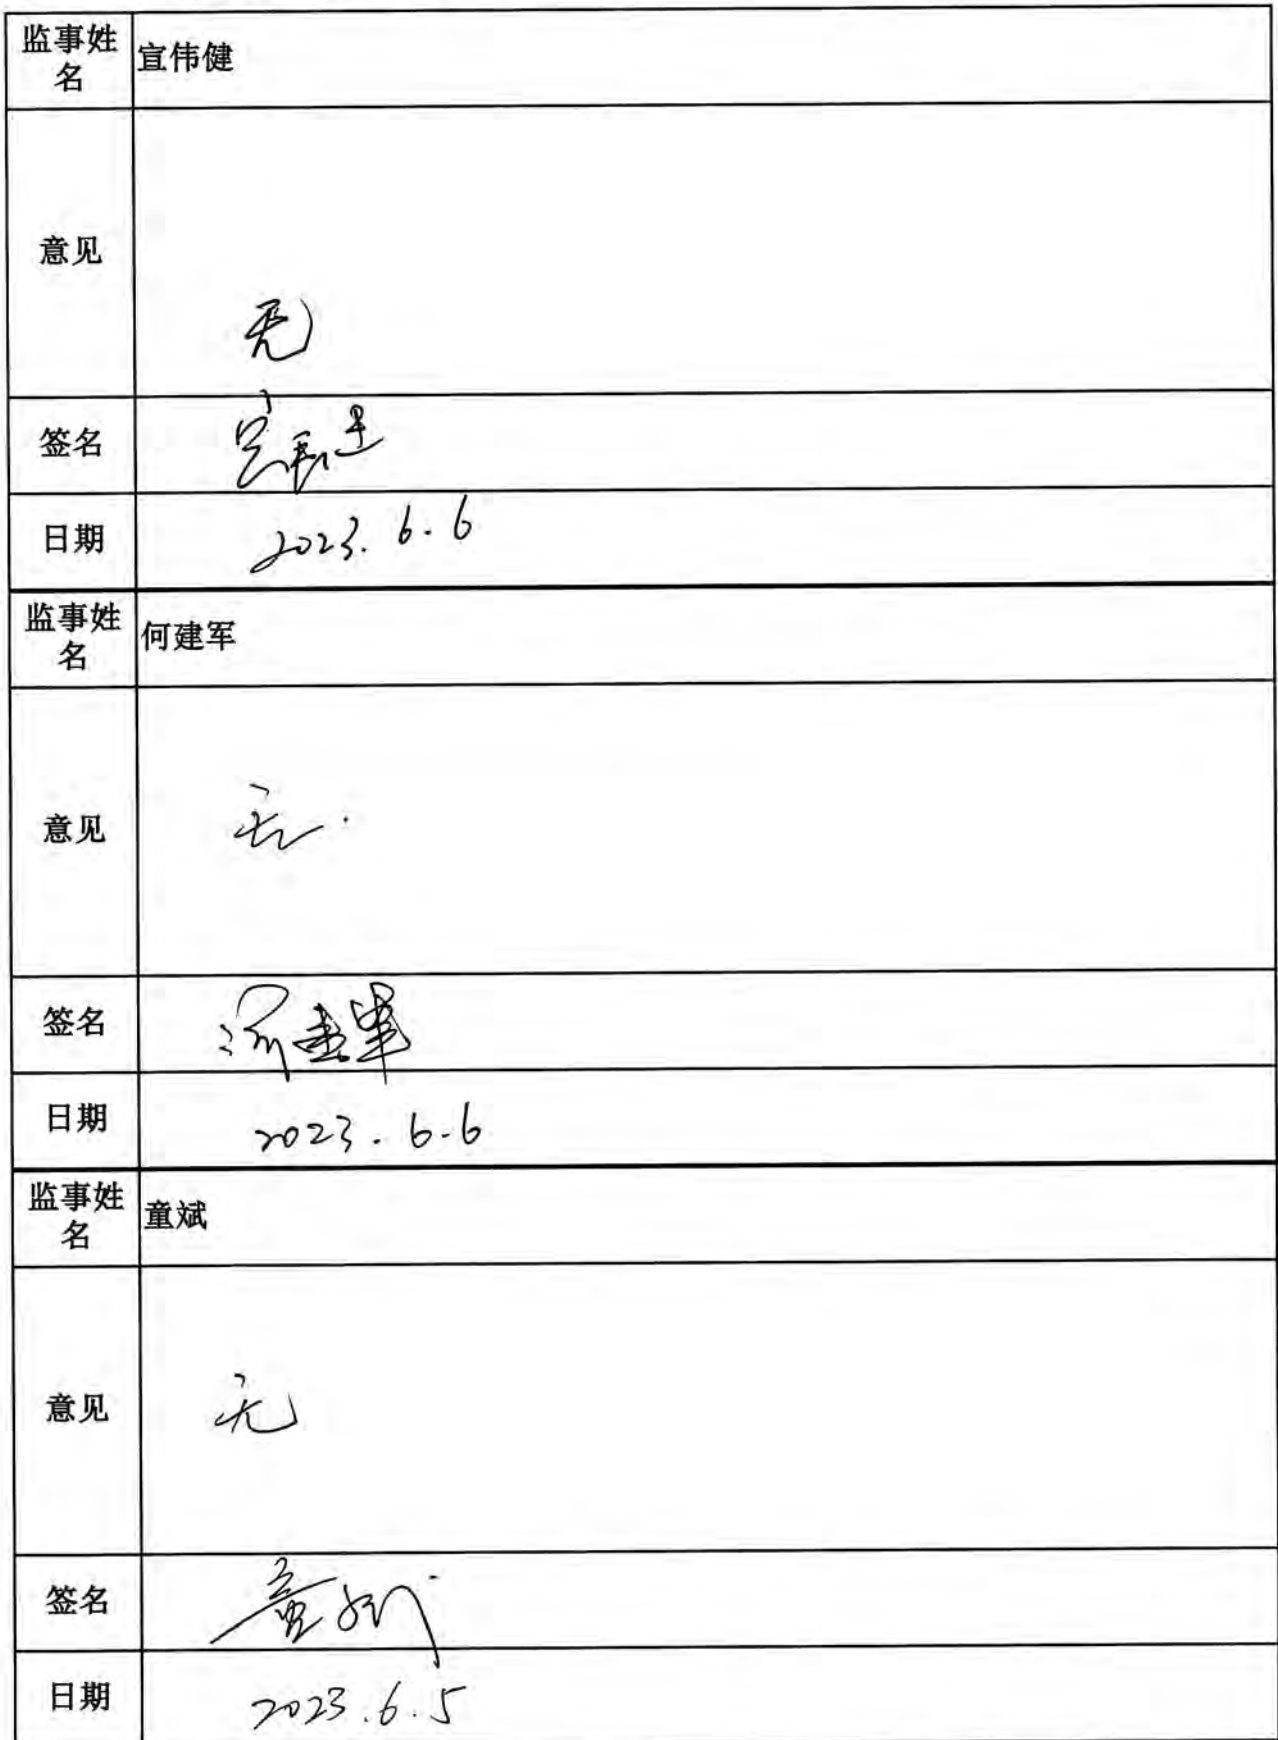 监事姓名 宣伟健
意见 无
签名 宣伟健
日期 2023.6.6
监事姓名 何建军
意见 无.
签名 何建军
日期 2023.6.6
监事姓名 童斌
意见 无
签名 童斌
日期 2023.6.5